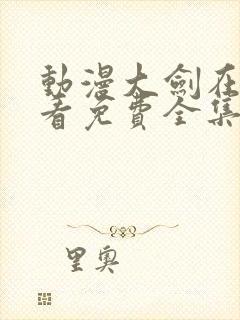 動漫大劍在
看免費全集
里奧